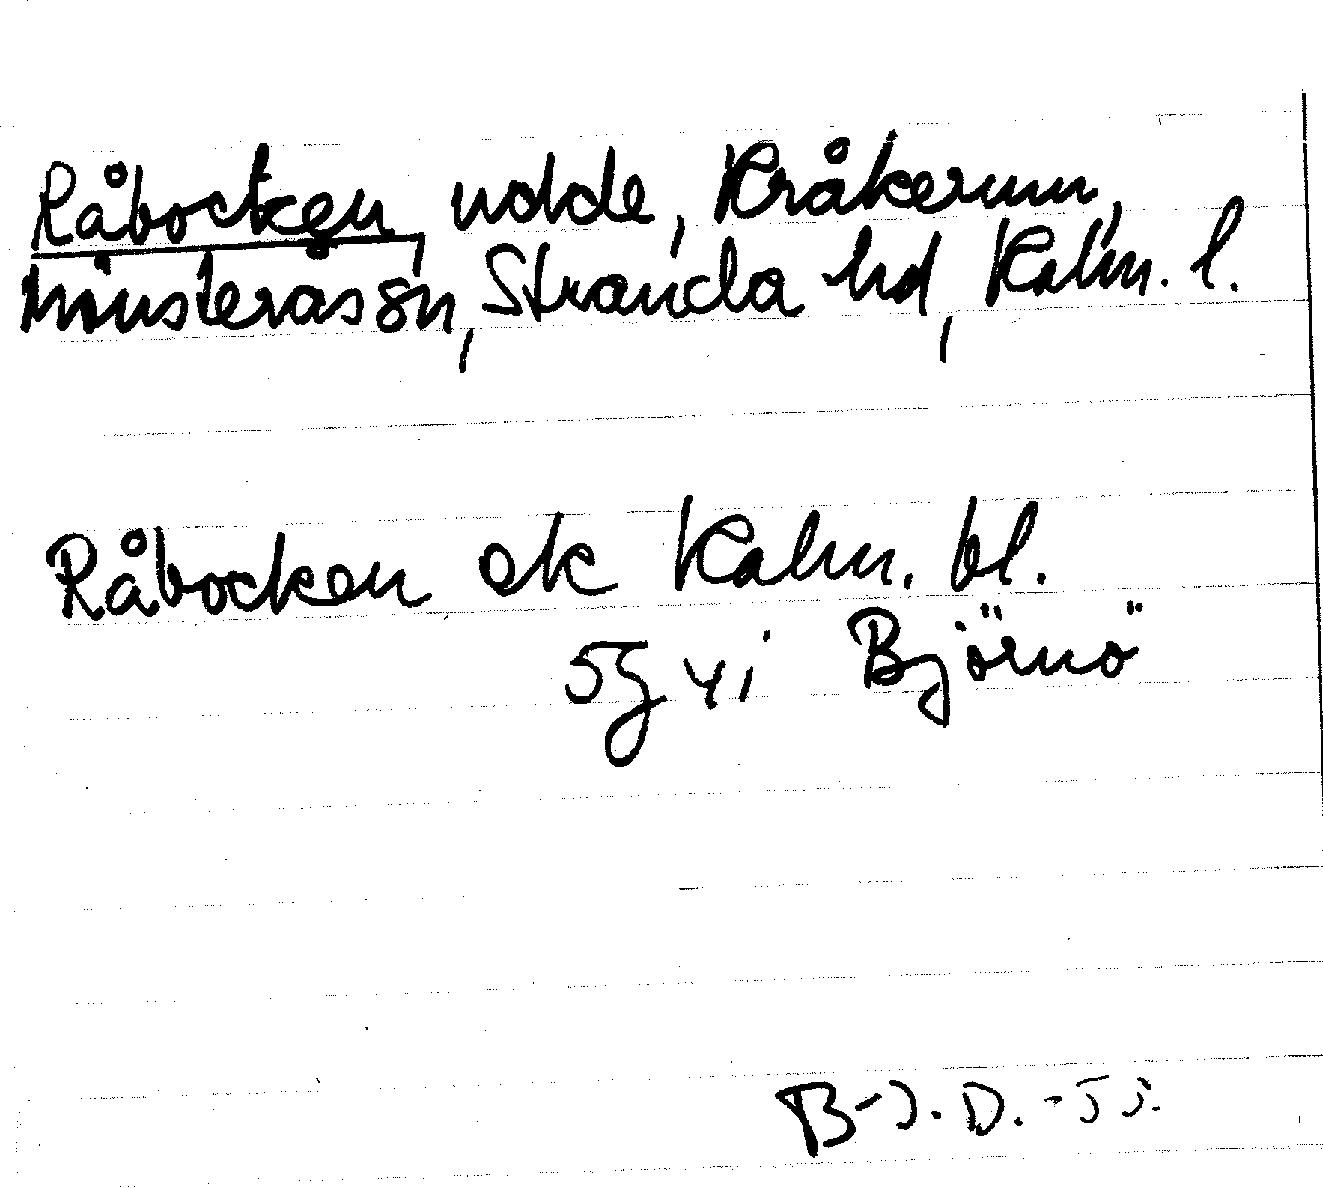 Råbocken, udde, Kråkerum,
Mönsterås sn, Stranda hd, Kalm. l.
Råbocken ek Kalm. bl.
5g yi Björnö
B-J. D. -55.